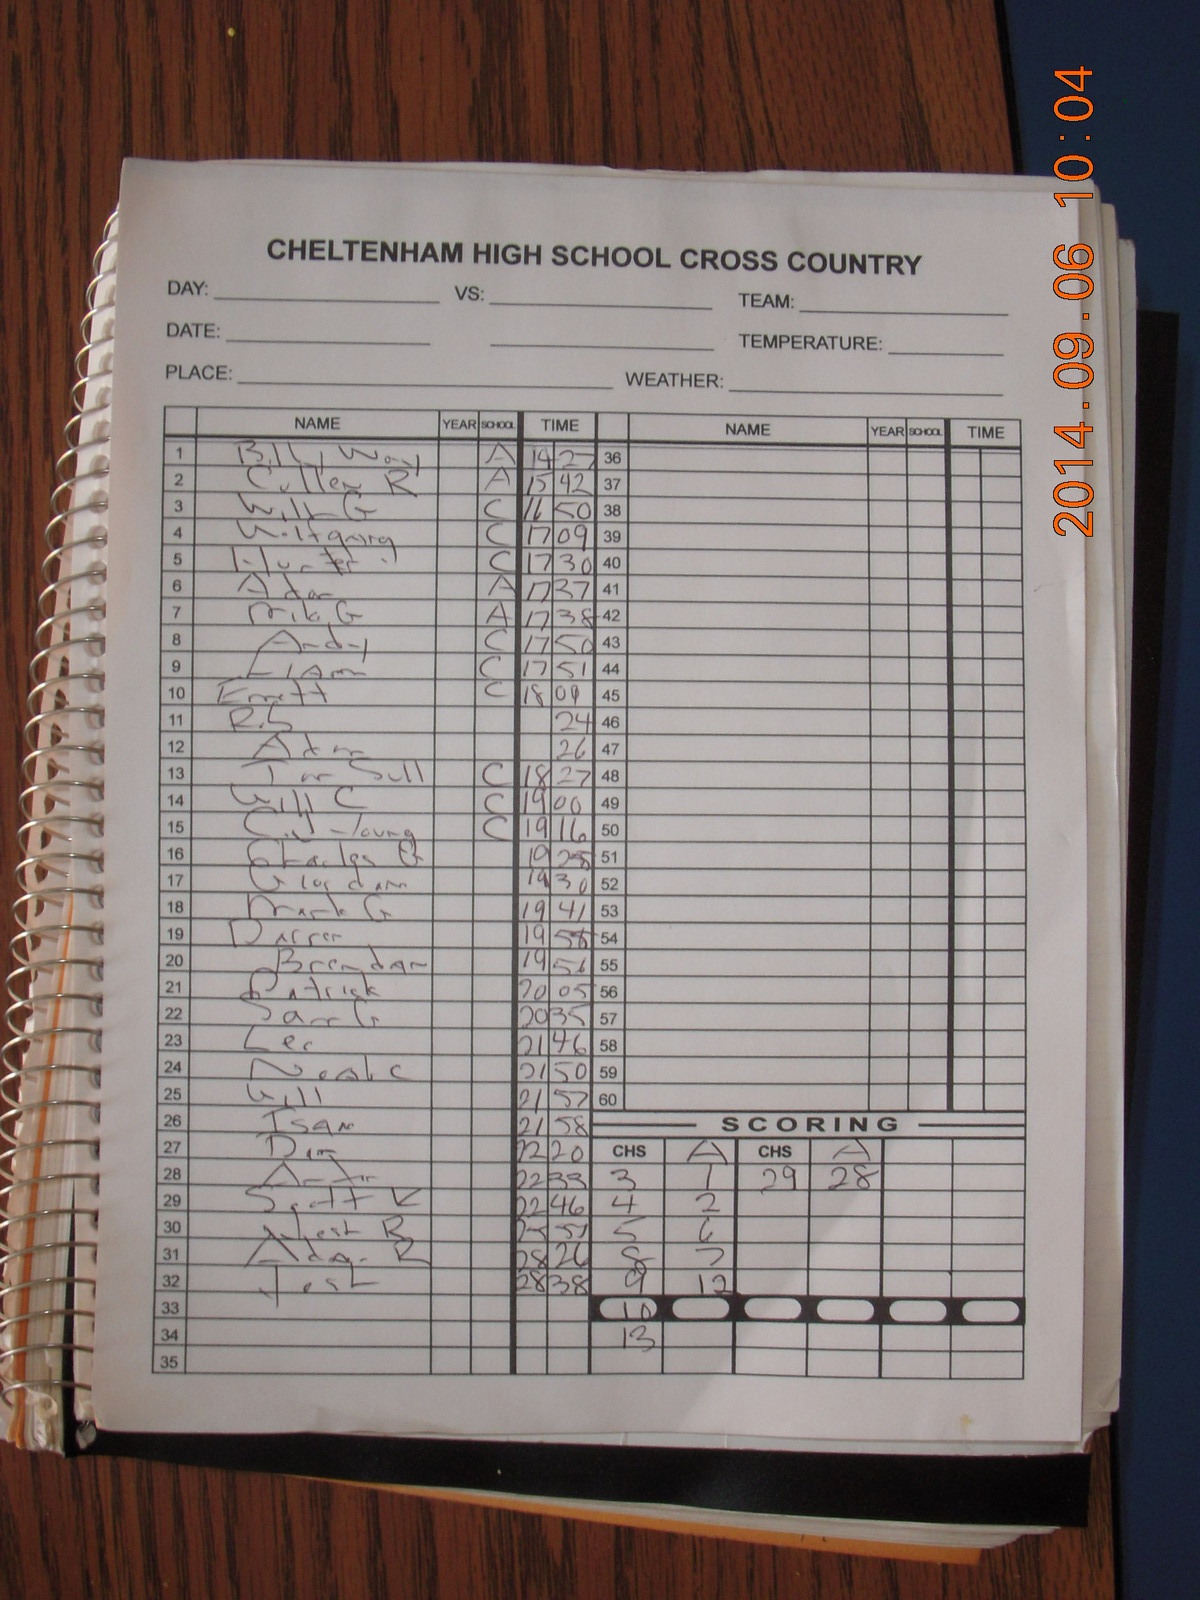 2014.09.06 10:04
CHELTENHAM HIGH SCHOOL CROSS COUNTRY
DAY: VS: TEAM:
DATE: TEMPERATURE:
PLACE: WEATHER:
NAME YEAR SCHOOL TIME NAME YEAR SCHOOL TIME
1 Billy A 14 27 36
2 Cullen R A 15 42 37
3 Will G C 16 50 38
4 Wolfgang C 17 09 39
5 Hunter C 17 30 40
6 Adam A 17 37 41
7 Mik G A 17 38 42
8 Andy C 17 50 43
9 Liam C 17 51 44
10 Emmett C 18 09 45
11 24 46
12 Adam 26 47
13 Sull C 18 27 48
14 Will C C 19 00 49
15 Young C 19 16 50
16 Charles G 19 51
17 19 30 52
18 Mark G 19 41 53
19 Darren 19 54
20 Brendan 19 56 55
21 Patrick 20 05 56
22 Sam G 20 35 57
23 Lee 21 46 58
24 Noah C 21 50 59
25 Will 21 57 60
26 Isaac 21 58 SCORING
27 Dan 22 20 CHS A CHS A
28 22 33 3 1 29 28
29 Scott K 22 46 4 2
30 R 5 6
31 Adam R 28 26 8 7
32 Josh 28 38 9 12
33 10
34 13
35